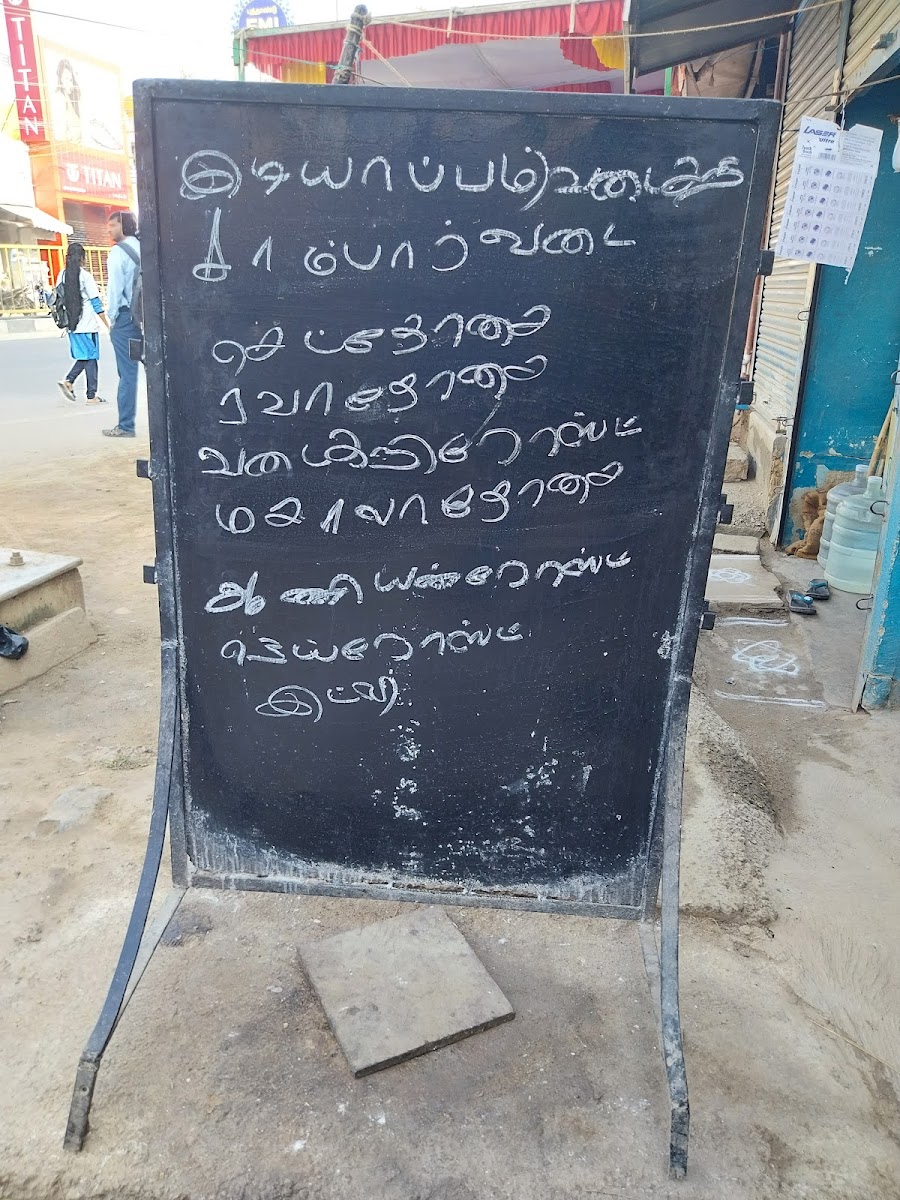 TITAN
TITAN
EMI
LASER
இடியாப்பம் வடைகறி
சாம்பார் வடை
செட்தோசை
ரவாதோசை
வடைகறிரோஸ்ட்
மசாலாதோசை
ஆனியன்ரோஸ்ட்
நெய்ரோஸ்ட்
இட்லி